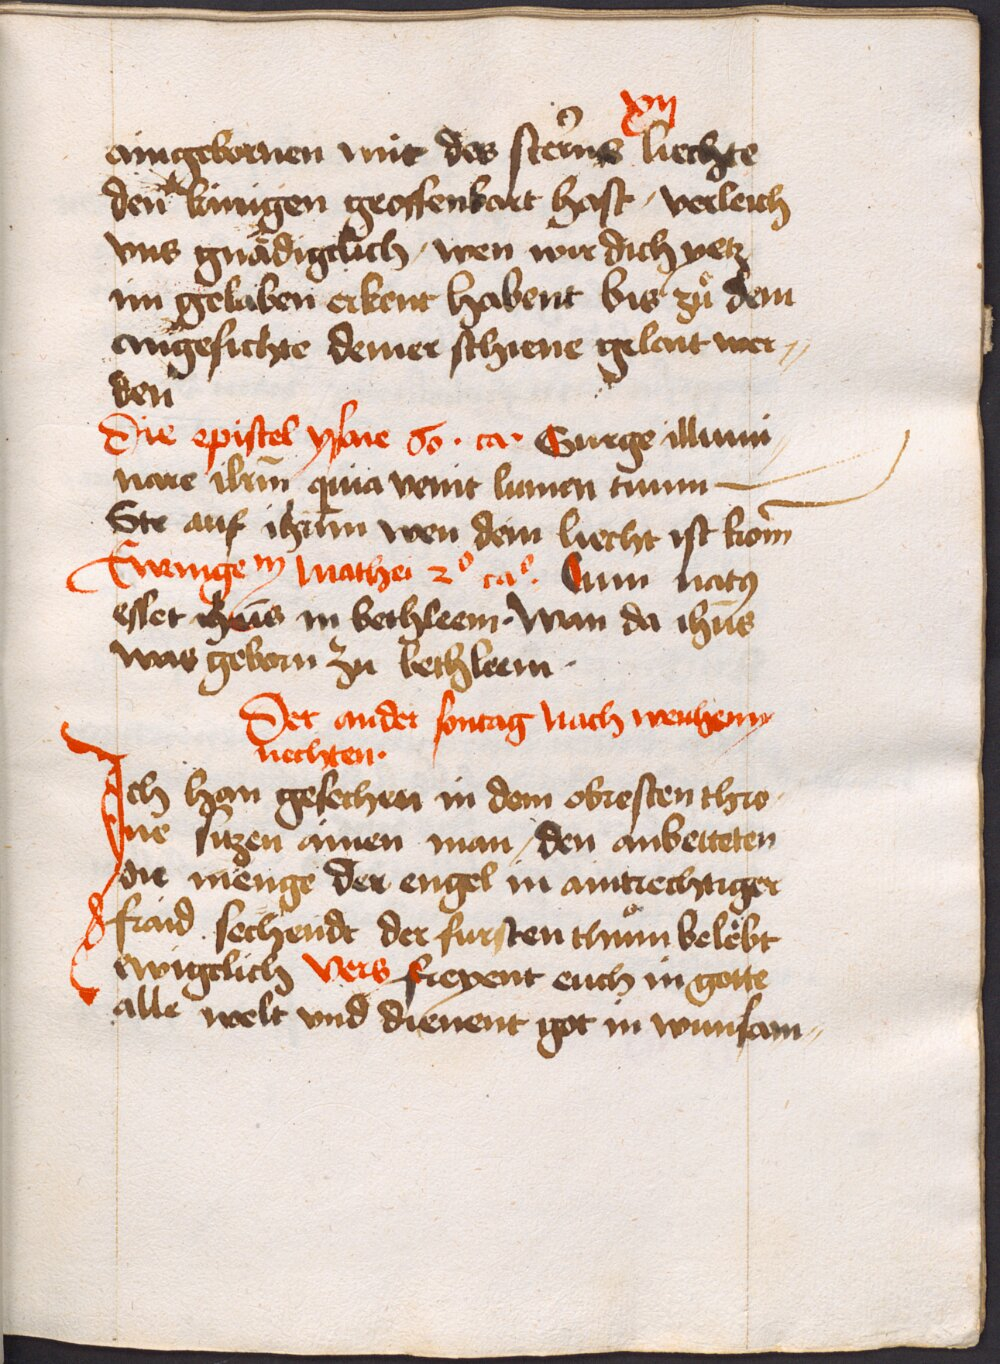 xvij
aingebornen mit des sterns liechte
den künigen geoffenbart hast / verleich
vns gnädigclich / wen wir dich yetz
im gelaben erkent habent bis zů dem
angesichte deiner schiene gelait wer //
den
Die epistel ysaie 60 · ca · Surge illumi //
nare ihrlm̄ quia venit lumen tuum
Ste auf ihrlm̄ wen dein liecht ist kom̄
Ewangem̄ Mathei 2º caº · Cum natꝰ
esset ihūs in bethleem · Wan da ihūs
was geborn zu bethleem ·
Der ander sontag nach weichenn
nechten ·
Ich han gesechen in dem obresten thro /
ne sitzen ainen man / den anbetteten
die menge der engel in aintrechtiger
fraid sechendt der fursten thům belëbt
ewigclich vers freyent euch in gotte
alle welt vnd dienent got in wunsam //